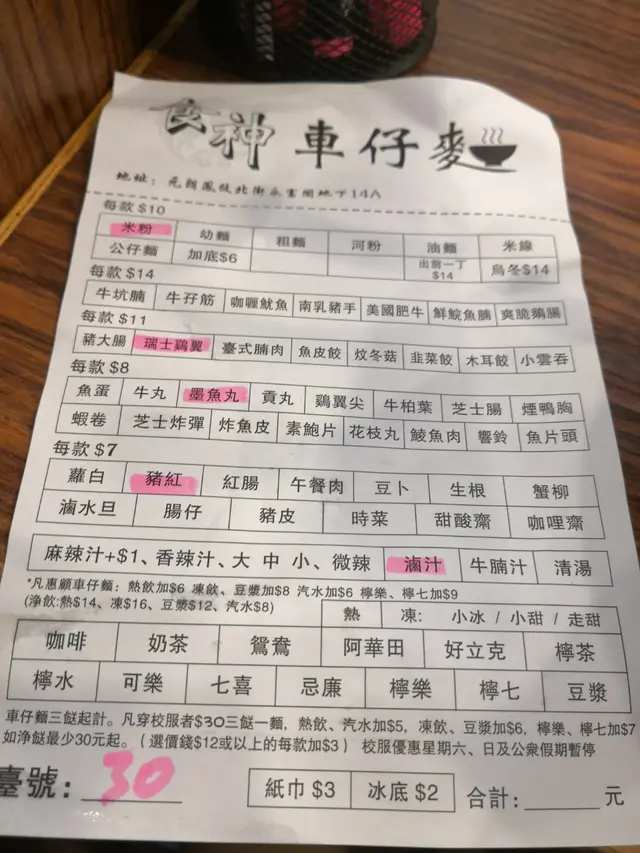 食神 車仔麵
地址：元朗鳳攸北街永富閣地下14A
每款 $10
米粉 幼麵 粗麵 河粉 油麵 米線
公仔麵 加底$6 出前一丁$14 烏冬$14
每款 $14
牛坑腩 牛孖筋 咖喱魷魚 南乳豬手 美國肥牛 鮮鯇魚腩 爽脆鵝腸
每款 $11
豬大腸 瑞士鷄翼 臺式腩肉 魚皮餃 炆冬菇 韭菜餃 木耳餃 小雲吞
每款 $8
魚蛋 牛丸 墨魚丸 貢丸 鷄翼尖 牛柏葉 芝士腸 煙鴨胸
蝦卷 芝士炸彈 炸魚皮 素鮑片 花枝丸 鯪魚肉 響鈴 魚片頭
每款 $7
蘿白 豬紅 紅腸 午餐肉 豆卜 生根 蟹柳
滷水旦 腸仔 豬皮 時菜 甜酸齋 咖哩齋
麻辣汁+$1、香辣汁、大 中 小、微辣 滷汁 牛腩汁 清湯
*凡惠顧車仔麵：熱飲加$6 凍飲、豆漿加$8 汽水加$6 檸樂、檸七加$9
(淨飲:熱$14、凍$16、豆漿$12、汽水$8) 熱 凍: 小冰 / 小甜 / 走甜
咖啡 奶茶 鴛鴦 阿華田 好立克 檸茶
檸水 可樂 七喜 忌廉 檸樂 檸七 豆漿
車仔麵三餸起計。凡穿校服者$30三餸一麵，熱飲、汽水加$5，凍飲、豆漿加$6，檸樂、檸七加$7
如淨餸最少30元起。（選價錢$12或以上的每款加$3） 校服優惠星期六、日及公衆假期暫停
臺號：30 紙巾 $3 冰底 $2 合計：元